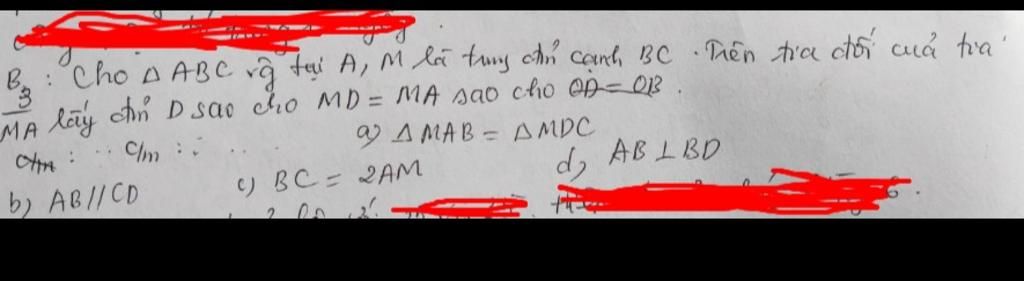 B3 : Cho Δ ABC vg tại A, M là trung đ' cạnh BC . Trên tia đối cuả tia
MA lấy đ' D sao cho MD = MA sao cho OD = OB .
c/m : a) Δ MAB = Δ MDC
b) AB // CD c) BC = 2AM d) AB ⊥ BD